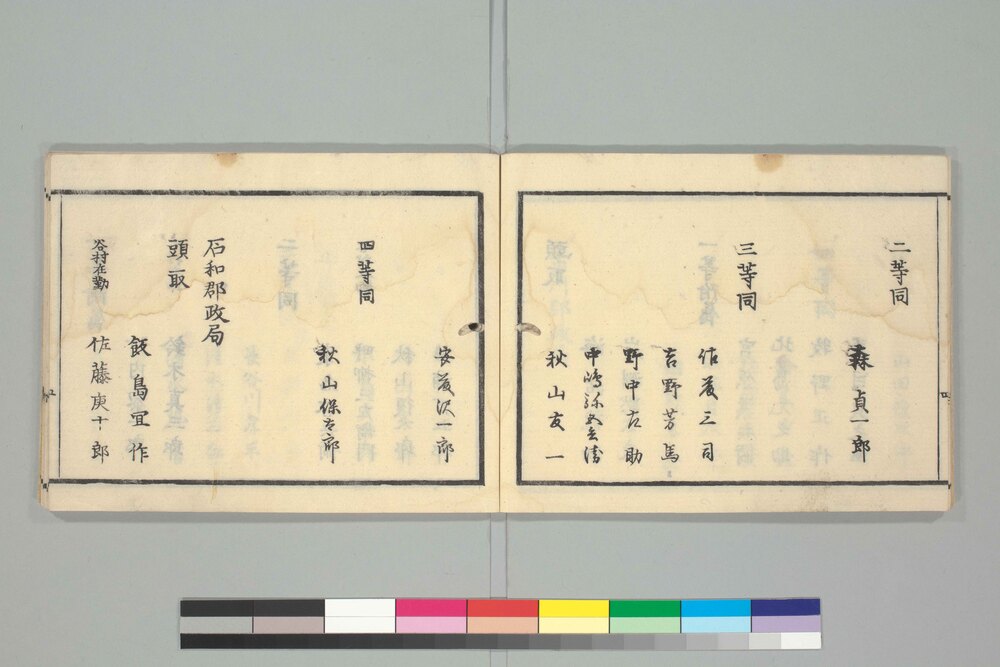 二等同
森貞一郎
三等同
佐藤三司
吉野芳馬
野中古助
中嶋弥五兵衛
秋山友一
安藤沢一郎
四等同
秋山保太郎
石和郡政局
頭取
飯島宜作
谷村在勤 佐藤庚十郎